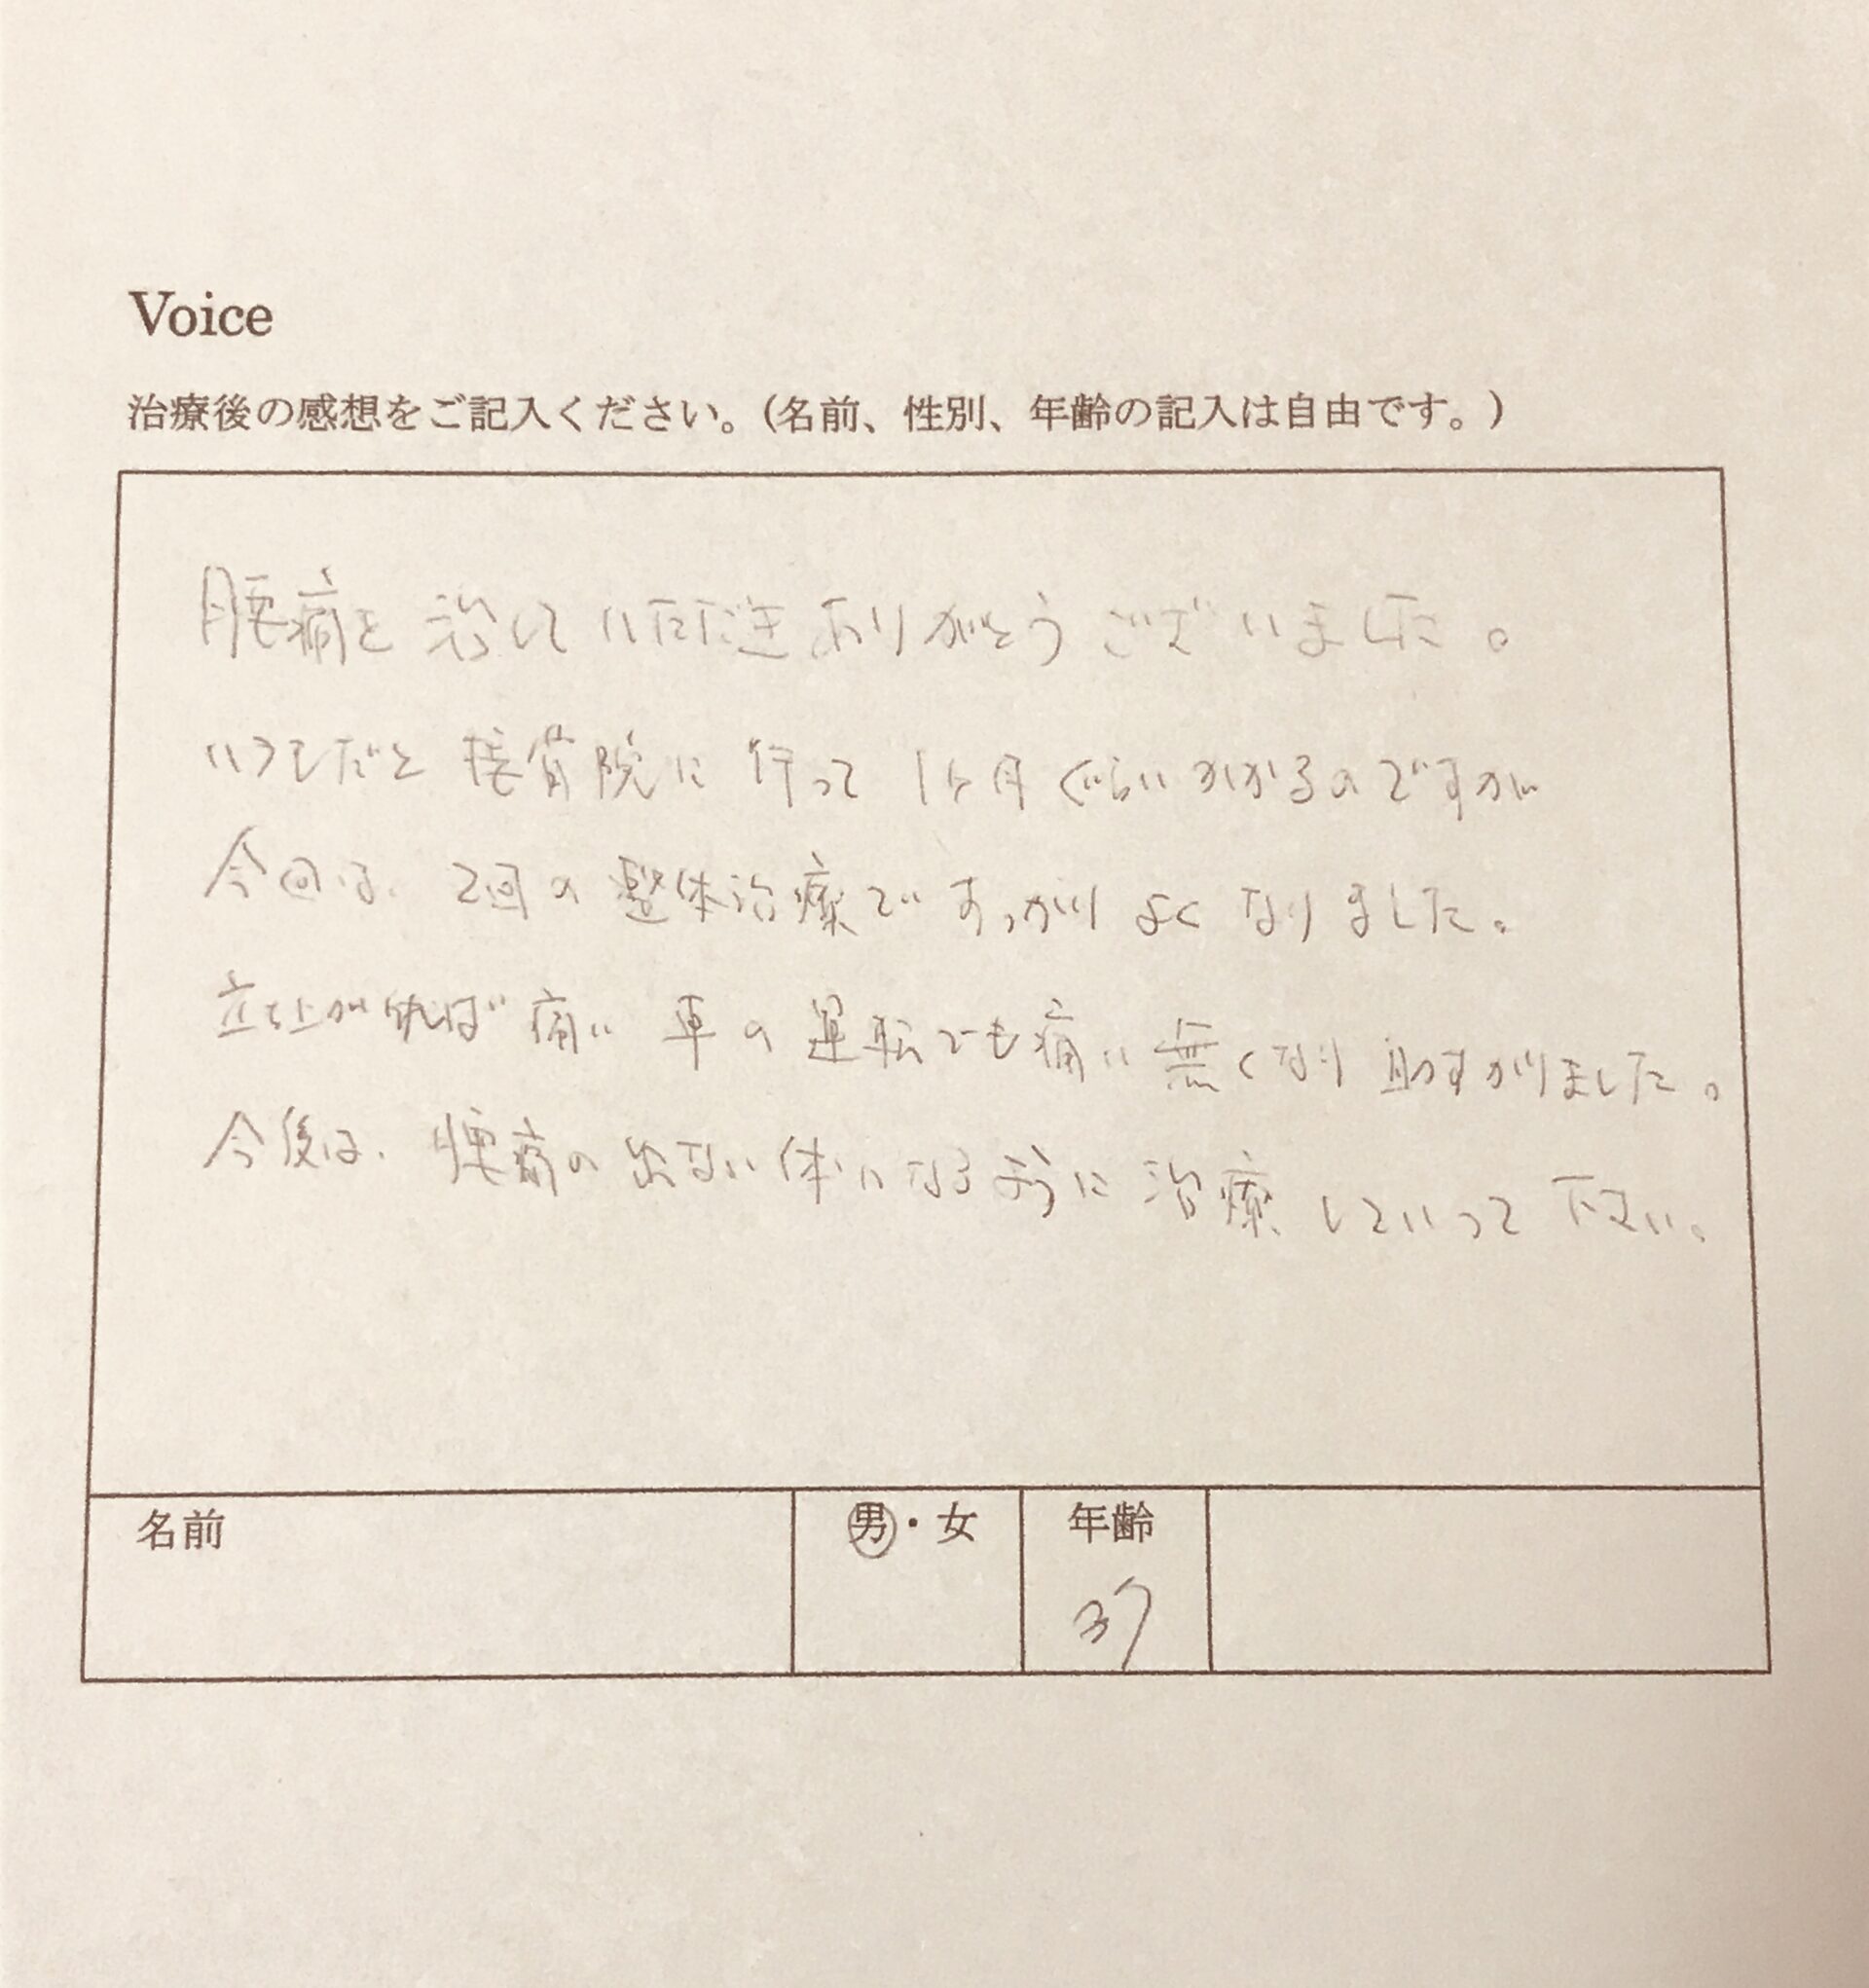 Voice
治療後の感想をご記入ください。(名前、性別、年齢の記入は自由です。)
腰痛を治していただきありがとうございました。
いつもだと接骨院に行って1ヶ月ぐらいかかるのですが
今回は、2回の整体治療ですっかりよくなりました。
立ち上がれば痛い車の運転でも痛い無くなり助すかりました。
今後は、腰痛の出ない体になるように治療していって下さい。
名前
男・女
年齢
37